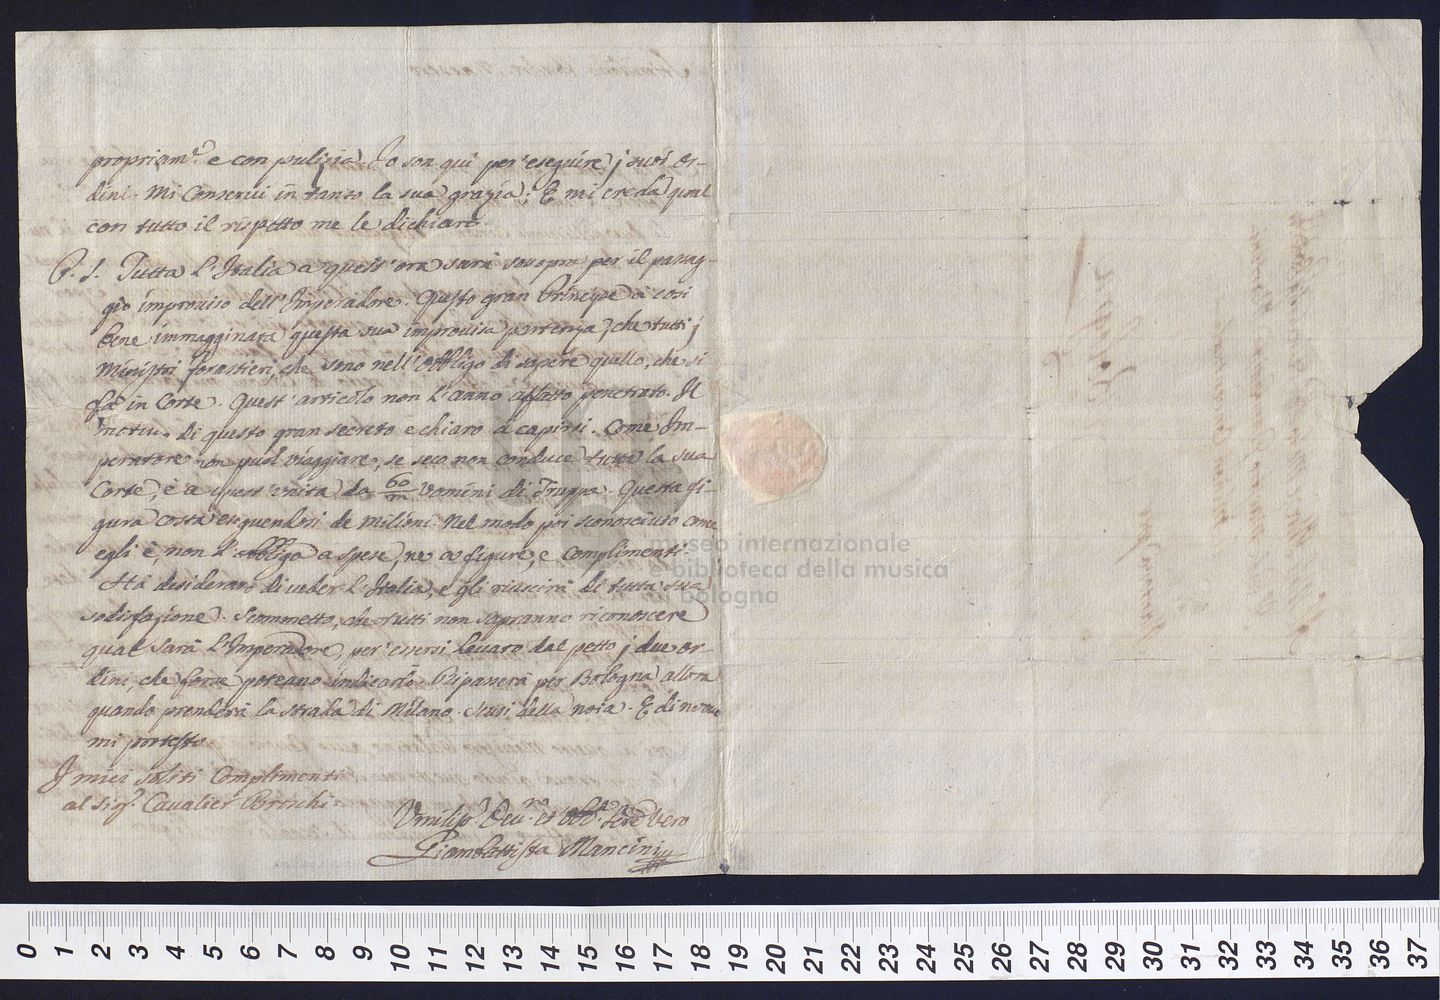 propriam.e e con pulizia. Io son qui per eseguire j suoi or-
dini. Mi Conservi in tanto la sua grazia; E mi creda qual
con tutto il rispetto me le dichiaro.
P. S. Tutta l'Italia a quest'ora sarà sosopra per il passag-
gio improviso dell'Imperadore. Questo gran Principe à così
bene immagginata questa sua improvisa partenza, che tutti j
Ministri forastieri, che sono nell'obbligo di sapere quello, che si
fà in Corte. Quest'articolo non l'anno affatto penetrato. Il
motivo di questo gran secreto è chiaro à capirsi. Come Im-
peratore non può viaggiare, se seco non conduce tutta la sua
Corte, è a quest'unita da 60/m Uomini di Truppa. Questa fi-
gura costa eseguendosi de Milioni. Nel modo poi sconosciuto come
egli è, non l'obbliga a spese, ne a figure, e complimenti.
Hà desiderato di veder l'Italia, e gli riuscirà di tutta sua
sodisfazione. Scommetto, che tutti non sapranno riconoscere
qual sarà l'Imperadore, per essersi levato dal petto j due or-
dini, che forse poteano indicarlo. Ripasserà per Bologna allora
quando prenderà la strada di Milano. Scusi della noia. E di nuovo
mi protesto.
I miei soliti Complimenti
al Sig.r Cavalier Broschi.
Umiliss.o Dev.mo et Obb.o Ser.e Vero
Giambattista Mancini
museo internazionale
e biblioteca della musica
bologna
0 1 2 3 4 5 6 7 8 9 10 11 12 13 14 15 16 17 18 19 20 21 22 23 24 25 26 27 28 29 30 31 32 33 34 35 36 37